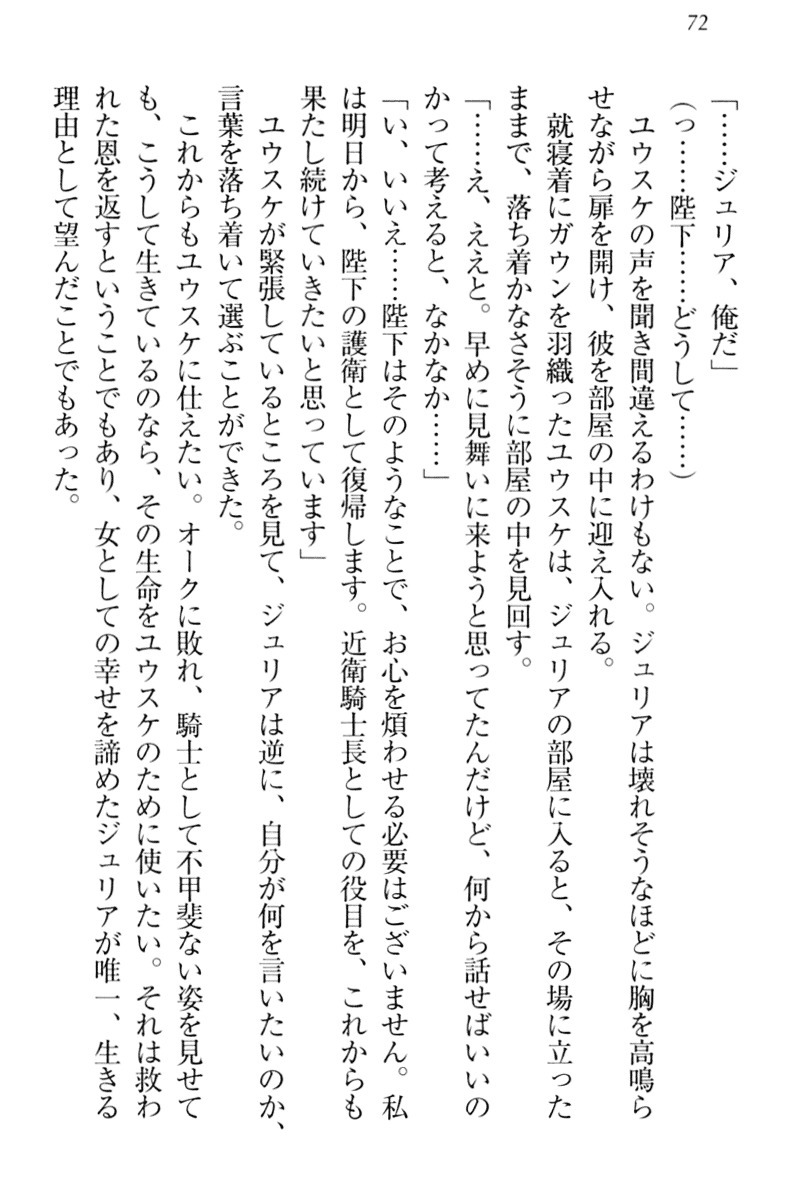 72
「……ジュリア、俺だ」
（っ……陛下……どうして……）
　ユウスケの声を聞き間違えるわけもない。ジュリアは壊れそうなほどに胸を高鳴ら
せながら扉を開け、彼を部屋の中に迎え入れる。
　就寝着にガウンを羽織ったユウスケは、ジュリアの部屋に入ると、その場に立った
ままで、落ち着かなさそうに部屋の中を見回す。
「……え、ええと。早めに見舞いに来ようと思ってたんだけど、何から話せばいいの
かって考えると、なかなか……」
「い、いいえ……陛下はそのようなことで、お心を煩わせる必要はございません。私
は明日から、陛下の護衛として復帰します。近衛騎士長としての役目を、これからも
果たし続けていきたいと思っています」
　ユウスケが緊張しているところを見て、ジュリアは逆に、自分が何を言いたいのか、
言葉を落ち着いて選ぶことができた。
　これからもユウスケに仕えたい。オークに敗れ、騎士として不甲斐ない姿を見せて
も、こうして生きているのなら、その生命をユウスケのために使いたい。それは救わ
れた恩を返すということでもあり、女としての幸せを諦めたジュリアが唯一、生きる
理由として望んだことでもあった。